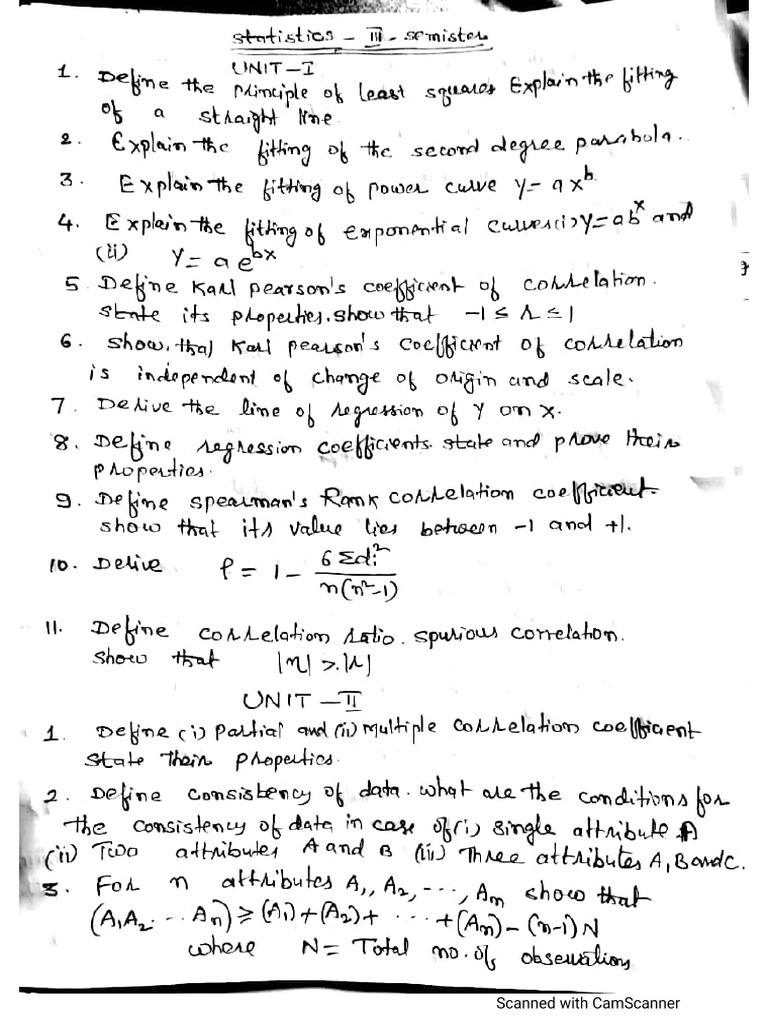 Statistics - III - semister
UNIT-I
1. Define the principle of least squares Explain the fitting
of a straight line
2. Explain the fitting of the second degree parabola.
3. Explain the fitting of power curve y = ax^b
4. Explain the fitting of exponential curves (i) y = ab^x and
(ii) y = ae^bx
5 Define Karl pearson's coefficient of correlation.
state its properties. show that -1 ≤ r ≤ 1
6. Show that Karl pearson's coefficient of correlation
is independent of change of origin and scale.
7. Derive the line of regression of y on x.
8. Define regression coefficients. state and prove their
properties.
9. Define Spearman's Rank correlation coefficient.
show that its value lies between -1 and +1.
10. Derive ρ = 1 - 6Σdi²/n(n²-1)
11. Define correlation ratio. spurious correlation.
Show that |η| ≥ |r|
UNIT-II
1. Define (i) partial and (ii) multiple correlation coefficient
state their properties.
2. Define consistency of data. what are the conditions for
the consistency of data in case of (i) single attribute A
(ii) Two attributes A and B (iii) Three attributes A, B and C.
3. For n attributes A1, A2, ---, An show that
(A1A2...An) ≥ (A1)+(A2)+ ... +(An) - (n-1)N
where N = Total no. of observations
Scanned with CamScanner